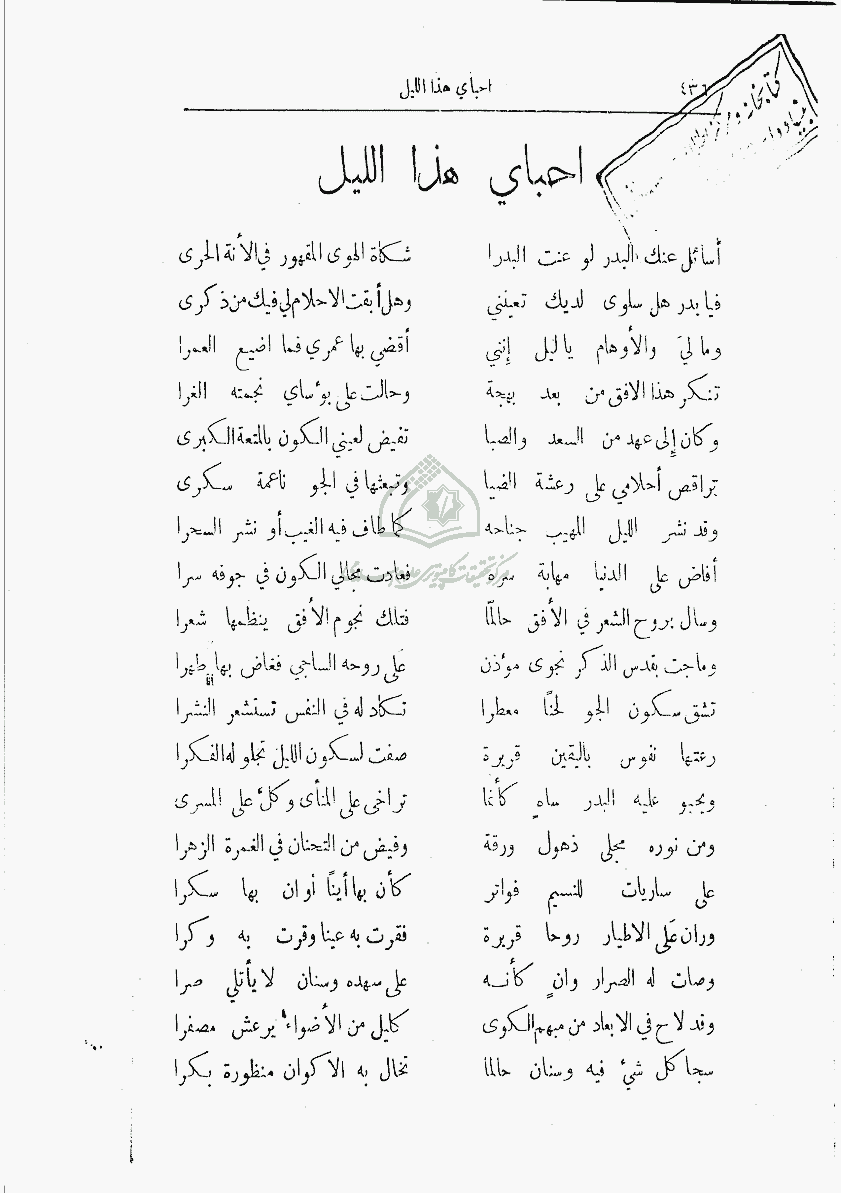 ٤٣٦ احبأي هذا الليل
كتابخانه و مركز
احباي هذا الليل
أسائل عنك البدر لو عنت البدرا شكاة الهوى المقهور في الأنة الحرى
فيا بدر هل سلوى لديك تعينني وهل أبقت الاحلام لي فيك من ذكرى
وما ليَ والأوهام يا ليل إنني أقضي بها عمري فما اضيع العمرا
تنكر هذا الافق من بعد بهجة وحالت على بؤساي نجمته الغرا
وكان إلى عهد من السعد والصبا تفيض لعيني الكون بالمتعة الكبرى
تراقص أحلامي على رعشة الضيا وتبعثها في الجو ناعمة سكرى
وقد نشر الليل المهيب جناحه كما طاف فيه الغيب أو نشر السحرا
أفاض على الدنيا مهابة سره فعادت مجالي الكون في جوفه سرا
وسال بروح الشعر في الأفق حالمًا فتلك نجوم الأفق ينظمها شعرا
وماجت بقدس الذكر نجوى مؤذن على روحه الساجي ففاض بها طهرا
تشق سكون الجو لحنًا معطرا تكاد له في النفس تستشعر النشرا
رعتها نفوس باليقين قريرة صفت لسكون الليل تجلو له الفكرا
ويحبو عليه البدر ساهٍ كأنما تراخى على المنأى وكلَّ على المسرى
ومن نوره مجلى ذهول ورقة وفيض من التحنان في الغمرة الزهرا
على ساريات للنسيم فواتر كأن بها أينًا أو ان بها سكرا
وران على الاطيار روحا قريرة فقرت به عينا وقرت به وكرا
وصات له الصرار وانٍ كأنه على سهده وسنان لا يأتلي صرا
وقد لاح في الابعاد من مبهم الكوى كليل من الأضواء يرعش مصفرا
سجا كل شيء فيه وسنان حالما تخال به الاكوان منظورة بكرا